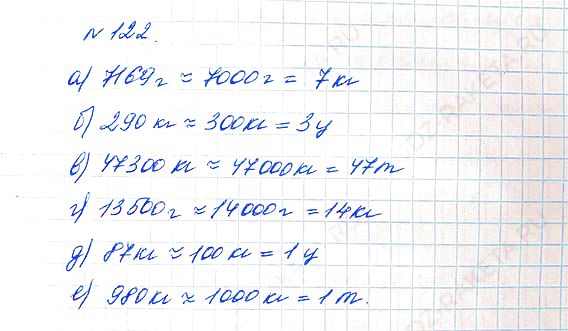 № 122.
а) 7169 г ≈ 7000 г = 7 кг
б) 290 кг ≈ 300 кг = 3 ц
в) 47300 кг ≈ 47000 кг = 47 т
г) 13500 г ≈ 14000 г = 14 кг
д) 87 кг ≈ 100 кг = 1 ц
е) 980 кг ≈ 1000 кг = 1 т.
DZ-RAKETA.RU
DZ-RAKETA.RU